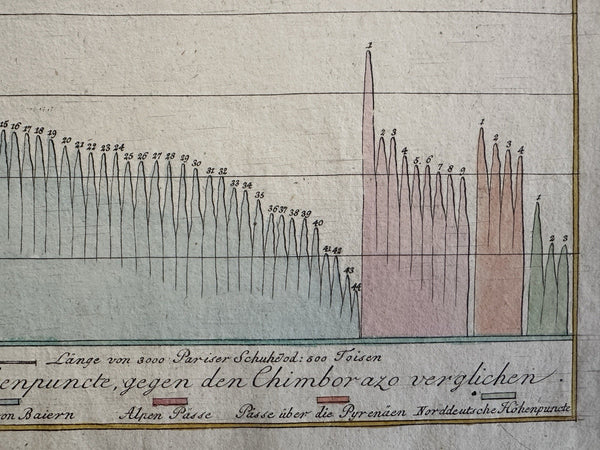 1
15 16 17 18 19 20 21 22 23 24 25 26 27 28 29 30 31 32 33 34 35 36 37 38 39 40 41 42 43 44
1 2 3 4 5 6 7 8 9
1 2 3 4
1 2 3
Länge von 3000 Pariser Schuh od: 500 Toisen
enpuncte, gegen den Chimborazo verglichen.
on Baiern Alpen Pässe Pässe über die Pyrenäen Norddeutsche Höhenpuncte